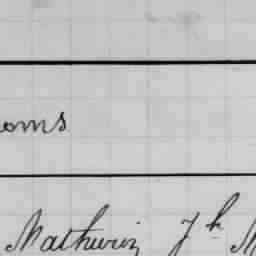 oms
Mathurin Jh